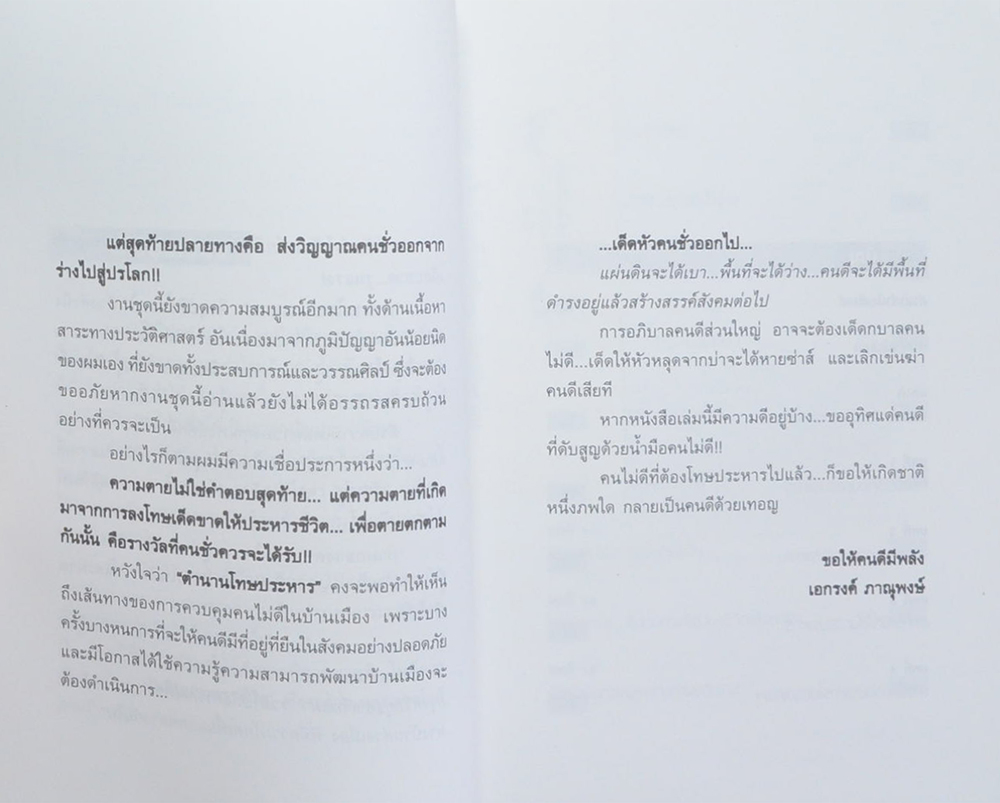 แต่สุดท้ายปลายทางคือ ส่งวิญญาณคนชั่วออกจาก
ร่างไปสู่ปรโลก!!
งานชุดนี้ยังขาดความสมบูรณ์อีกมาก ทั้งด้านเนื้อหา
สาระทางประวัติศาสตร์ อันเนื่องมาจากภูมิปัญญาอันน้อยนิด
ของผมเอง ที่ยังขาดทั้งประสบการณ์และวรรณศิลป์ ซึ่งจะต้อง
ขออภัยหากงานชุดนี้อ่านแล้วยังไม่ได้อรรถรสครบถ้วน
อย่างที่ควรจะเป็น
อย่างไรก็ตามผมมีความเชื่อประการหนึ่งว่า...
ความตายไม่ใช่คำตอบสุดท้าย... แต่ความตายที่เกิด
มาจากการลงโทษเด็ดขาดให้ประหารชีวิต... เพื่อตายตกตาม
กันนั้น คือรางวัลที่คนชั่วควรจะได้รับ!!
หวังใจว่า "ตำนานโทษประหาร" คงจะพอทำให้เห็น
ถึงเส้นทางของการควบคุมคนไม่ดีในบ้านเมือง เพราะบาง
ครั้งบางหนการที่จะให้คนดีมีที่อยู่ที่ยืนในสังคมอย่างปลอดภัย
และมีโอกาสได้ใช้ความรู้ความสามารถพัฒนาบ้านเมืองจะ
ต้องดำเนินการ...
...เด็ดหัวคนชั่วออกไป...
แผ่นดินจะได้เบา...พื้นที่จะได้ว่าง...คนดีจะได้มีพื้นที่
ดำรงอยู่แล้วสร้างสรรค์สังคมต่อไป
การอภิบาลคนดีส่วนใหญ่ อาจจะต้องเด็ดกบาลคน
ไม่ดี...เด็ดให้หัวหลุดจากบ่าจะได้หายซ่าส์ และเลิกเข่นฆ่า
คนดีเสียที
หากหนังสือเล่มนี้มีความดีอยู่บ้าง...ขออุทิศแด่คนดี
ที่ดับสูญด้วยน้ำมือคนไม่ดี!!
คนไม่ดีที่ต้องโทษประหารไปแล้ว...ก็ขอให้เกิดชาติ
หนึ่งภพใด กลายเป็นคนดีด้วยเทอญ
ขอให้คนดีมีพลัง
เอกรงค์ ภาณุพงษ์